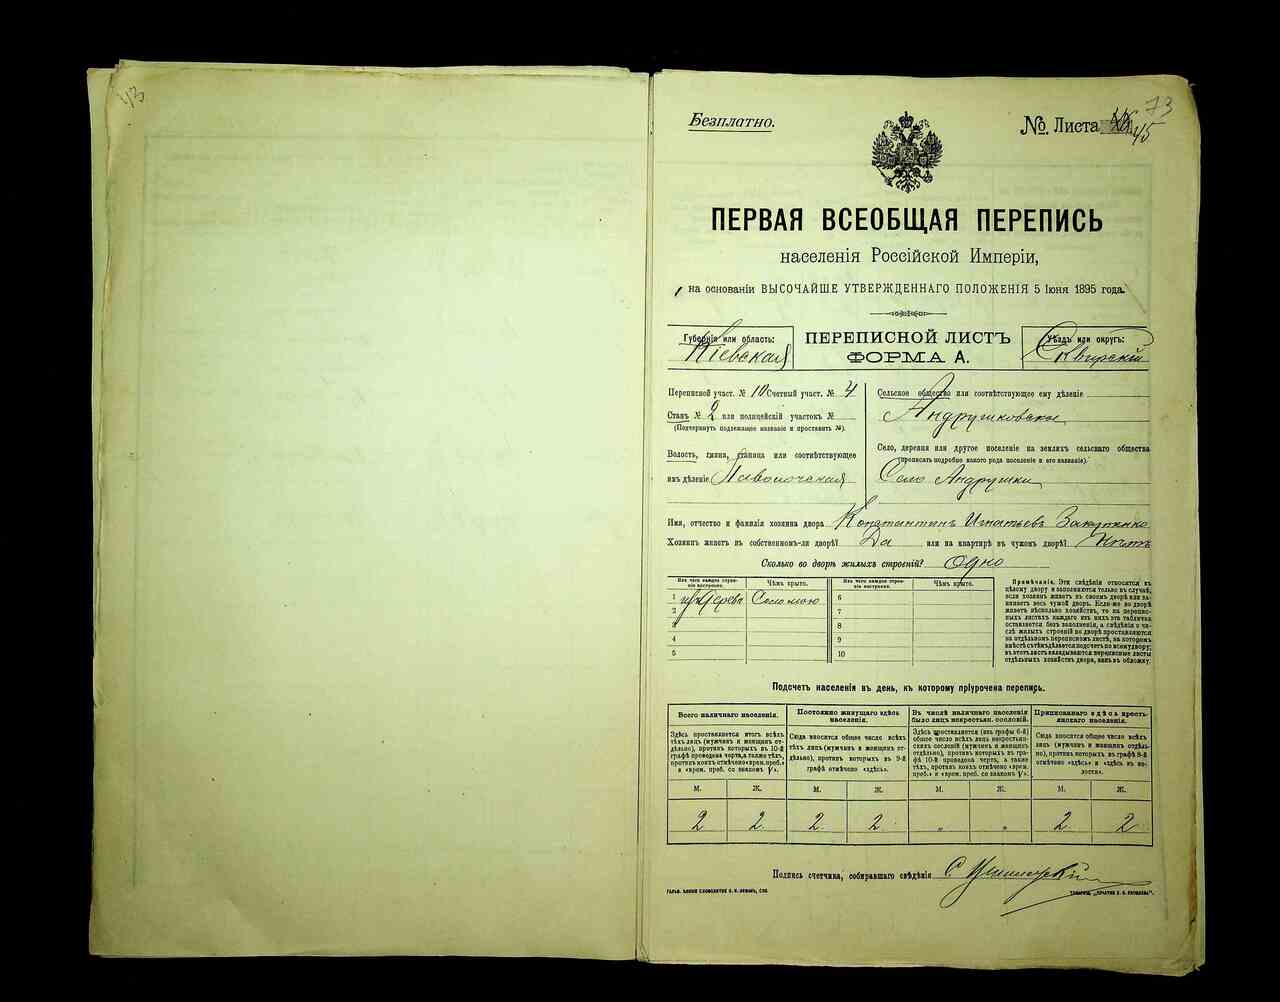 43
73
Безплатно.
№ Листа 45
ПЕРВАЯ ВСЕОБЩАЯ ПЕРЕПИСЬ
населенія Россійской Имперіи,
на основаніи ВЫСОЧАЙШЕ УТВЕРЖДЕННАГО ПОЛОЖЕНІЯ 5 Іюня 1895 года.
Губернія или область:
Кіевская
ПЕРЕПИСНОЙ ЛИСТЪ
ФОРМА А.
Уѣздъ или округъ:
Сквирскій
Переписной участ. № 10 Счетный участ. № 4
Станъ № 2 или полицейскій участокъ №
(Подчеркнуть подлежащее названіе и проставить №).
Волость, гмина, станица или соотвѣтствующее
имъ дѣленіе Паволочская
Сельское общество или соотвѣтствующее ему дѣленіе
Андрушковское
Село, деревня или другое поселеніе на земляхъ сельскаго общества
(прописать подробно какого рода поселеніе и его названіе).
Село Андрушки
Имя, отчество и фамилія хозяина двора Константинъ Игнатьевъ
Хозяинъ живетъ въ собственномъ-ли дворѣ? Да или на квартирѣ въ чужомъ дворѣ? Нѣтъ
Сколько во дворѣ жилыхъ строеній? Одно
Изъ чего каждое строеніе построено.
Чѣмъ крыто.
Изъ чего каждое строеніе построено.
Чѣмъ крыто.
1 изъ дерева Соломою 6
2 7
3 8
4 9
5 10
Примѣчаніе. Эти свѣдѣнія относятся къ
цѣлому двору и заполняются только въ случаѣ,
если хозяинъ живетъ въ своемъ дворѣ или занимаетъ весь чужой дворъ. Если-же во дворѣ
живетъ нѣсколько хозяйствъ, то на переписныхъ листахъ каждаго изъ нихъ эта табличка
оставляется безъ заполненія, а свѣдѣнія о числѣ жилыхъ строеній во дворѣ проставляются
на отдѣльномъ переписномъ листѣ, на которомъ
вмѣстѣ съ тѣмъ дѣлается подсчетъ по всему двору;
въ этотъ листъ вкладываются переписные листы
отдѣльныхъ хозяйствъ двора, какъ въ обложку.
Подсчетъ населенія въ день, къ которому пріурочена перепись.
Всего наличнаго населенія.
Здѣсь проставляется итогъ всѣхъ
тѣхъ лицъ (мужчинъ и женщинъ отдѣльно), противъ которыхъ въ 10-й
графѣ проведена черта, а также тѣхъ,
противъ коихъ отмѣчено «врем. преб.»
и «врем. преб. со знакомъ V».
Постоянно живущаго здѣсь
населенія.
Сюда вносится общее число всѣхъ
тѣхъ лицъ (мужчинъ и женщинъ отдѣльно), противъ которыхъ въ 9-й
графѣ отмѣчено «здѣсь».
Въ числѣ наличнаго населенія
было лицъ некрестьян. сословій.
Здѣсь проставляется (изъ графы 6-й)
общее число всѣхъ лицъ некрестьянскихъ сословій (мужчинъ и женщинъ
отдѣльно), противъ которыхъ въ графѣ 10-й проведена черта, а также
тѣхъ, противъ коихъ отмѣчено «врем.
преб.» и «врем. преб. со знакомъ V».
Приписаннаго здѣсь крестьянскаго населенія.
Сюда вносится общее число всѣхъ
лицъ (мужчинъ и женщинъ отдѣльно), противъ коихъ въ графѣ 8-й
отмѣчено «здѣсь» и «здѣсь въ волости».
М. Ж. М. Ж. М. Ж. М. Ж.
2 2 2 2 „ „ 2 2
Подпись счетчика, собиравшаго свѣдѣнія